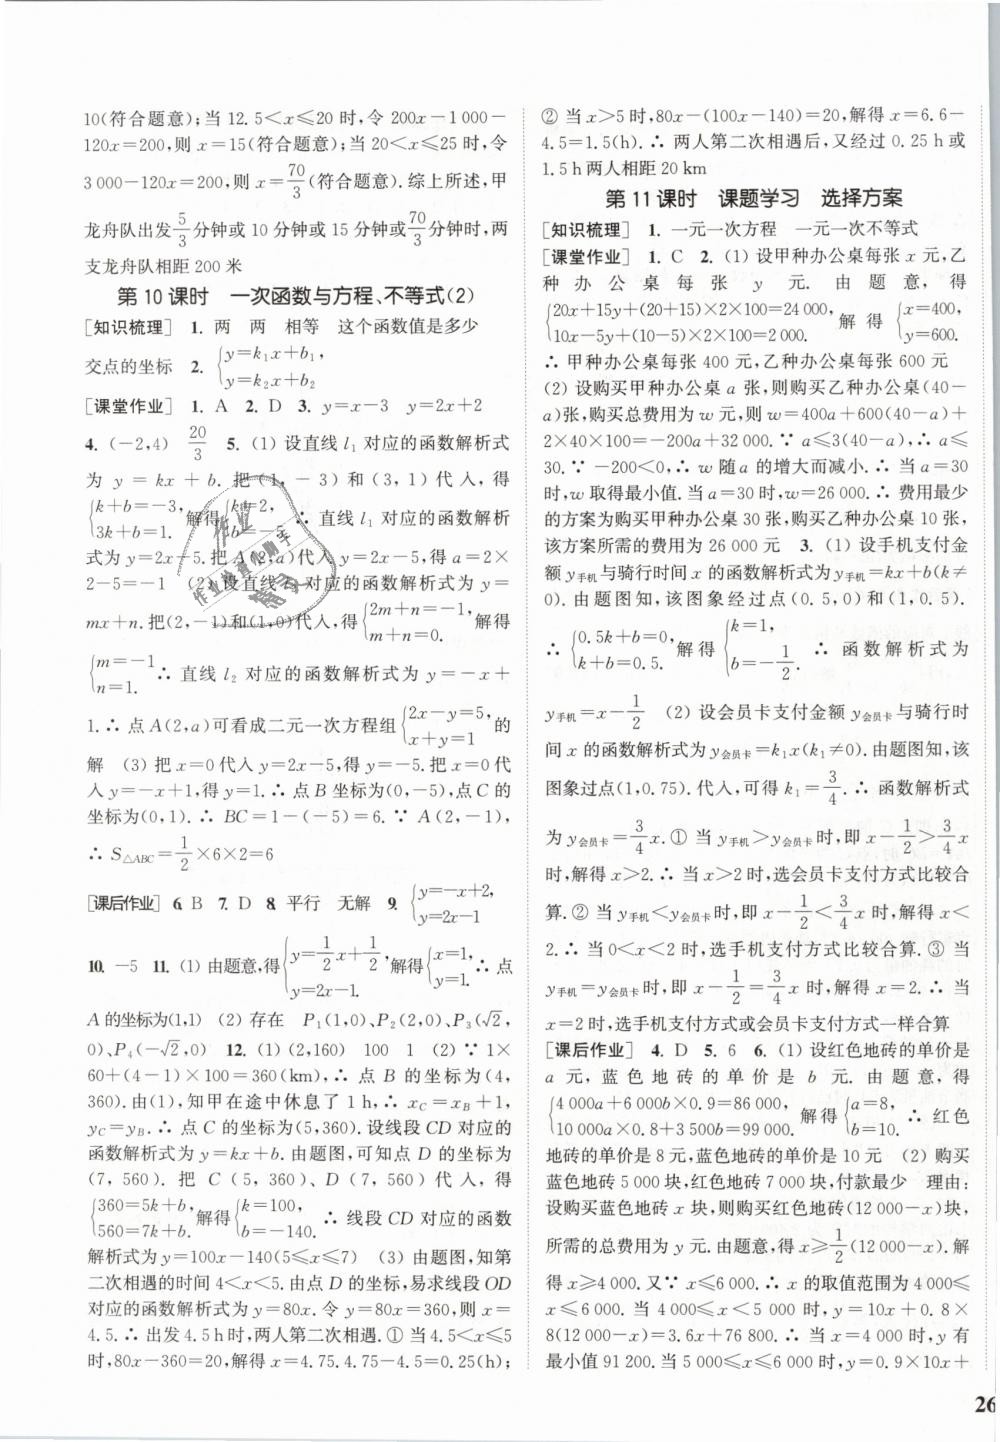 10(符合题意);当 12.5<x≤20 时,令 200x-1 000-
120x=200,则 x=15(符合题意);当 20<x≤25 时,令
3 000-120x=200,则 x=70/3(符合题意).综上所述,甲
龙舟队出发5/3分钟或 10 分钟或 15 分钟或70/3分钟时,两
支龙舟队相距 200 米
第 10 课时 一次函数与方程、不等式(2)
[知识梳理] 1. 两 两 相等 这个函数值是多少
交点的坐标 2. {y=k₁x+b₁, y=k₂x+b₂
[课堂作业] 1. A 2. D 3. y=x-3 y=2x+2
4. (-2,4) 20/3 5. (1) 设直线 l₁ 对应的函数解析式
为 y=kx+b. 把 (1,-3) 和 (3,1) 代入,得
{k+b=-3, 3k+b=1. 解得{k=2, ∴ 直线 l₁ 对应的函数解析
式为 y=2x-5. 把 A(2,a)代入 y=2x-5,得 a=2×
2-5=-1 (2) 设直线 l₂ 对应的函数解析式为 y=
mx+n. 把(2,-1)和(1,0)代入,得{2m+n=-1, m+n=0. 解得
{m=-1 n=1. ∴ 直线 l₂ 对应的函数解析式为 y=-x+
1.∴ 点 A(2,a)可看成二元一次方程组{2x-y=5, x+y=1 的
解 (3) 把 x=0 代入 y=2x-5,得 y=-5.把 x=0 代
入 y=-x+1,得 y=1.∴ 点 B 坐标为(0,-5),点 C 的
坐标为(0,1).∴ BC=1-(-5)=6.∵ A(2,-1),
∴ S△ABC=1/2×6×2=6
[课后作业] 6. B 7. D 8. 平行 无解 9. {y=-x+2, y=2x-1
10. -5 11. (1) 由题意,得{y=1/2x+1/2, y=2x-1. 解得{x=1, y=1. ∴ 点
A 的坐标为(1,1) (2) 存在 P₁(1,0)、P₂(2,0)、P₃(√2,
0)、P₄(-√2,0) 12. (1) (2,160) 100 1 (2) ∵ 1×
60+(4-1)×100=360(km),∴ 点 B 的坐标为(4,
360).由(1),知甲在途中休息了 1 h,∴ xC=xB+1,
yC=yB.∴ 点 C 的坐标为(5,360).设线段 CD 对应的
函数解析式为 y=kx+b. 由题图,可知点 D 的坐标为
(7,560). 把 C(5,360)、D(7,560) 代入,得
{360=5k+b, 560=7k+b. 解得{k=100, b=-140. ∴ 线段 CD 对应的函数
解析式为 y=100x-140(5≤x≤7) (3) 由题图,知第
二次相遇的时间 4<x<5.由点 D 的坐标,易求线段 OD
对应的函数解析式为 y=80x.令 y=80x=360,则 x=
4.5.∴ 出发 4.5 h 时,两人第二次相遇.① 当 4.5≤x≤5
时,80x-360=20,解得 x=4.75.4.75-4.5=0.25(h);
② 当 x>5 时,80x-(100x-140)=20,解得 x=6.6-
4.5=1.5(h).∴ 两人第二次相遇后,又经过 0.25 h 或
1.5 h 两人相距 20 km
第 11 课时 课题学习 选择方案
[知识梳理] 1. 一元一次方程 一元一次不等式
[课堂作业] 1. C 2. (1) 设甲种办公桌每张 x 元,乙
种办公桌每张 y 元. 由题意,得
{20x+15y+(20+15)×2×100=24 000, 10x-5y+(10-5)×2×100=2 000. 解得{x=400, y=600.
∴ 甲种办公桌每张 400 元,乙种办公桌每张 600 元
(2) 设购买甲种办公桌 a 张,则购买乙种办公桌(40-
a)张,购买总费用为 w 元,则 w=400a+600(40-a)+
2×40×100=-200a+32 000.∵ a≤3(40-a),∴ a≤
30.∵ -200<0,∴ w 随 a 的增大而减小.∴ 当 a=30
时,w 取得最小值.当 a=30 时,w=26 000.∴ 费用最少
的方案为购买甲种办公桌 30 张,购买乙种办公桌 10 张,
该方案所需的费用为 26 000 元 3. (1) 设手机支付金
额 y手机与骑行时间 x 的函数解析式为 y手机=kx+b(k≠
0). 由题图知,该图象经过点(0.5,0)和(1,0.5).
∴ {0.5k+b=0, k+b=0.5. 解得{k=1, b=-1/2. ∴ 函数解析式为
y手机=x-1/2 (2) 设会员卡支付金额 y会员卡与骑行时
间 x 的函数解析式为 y会员卡=k₁x(k₁≠0).由题图知,该
图象过点(1,0.75).代入,可得 k₁=3/4.∴ 函数解析式
为 y会员卡=3/4x.① 当 y手机>y会员卡时,即 x-1/2>3/4x
时,解得 x>2.∴ 当 x>2 时,选会员卡支付方式比较合
算.② 当 y手机<y会员卡时,即 x-1/2<3/4x 时,解得 x<
2.∴ 当 0<x<2 时,选手机支付方式比较合算.③ 当
y手机=y会员卡时,即 x-1/2=3/4x 时,解得 x=2.∴ 当
x=2 时,选手机支付方式或会员卡支付方式一样合算
[课后作业] 4. D 5. 6 6. (1) 设红色地砖的单价是
a 元,蓝色地砖的单价是 b 元. 由题意,得
{4 000a+6 000b×0.9=86 000, 10 000a×0.8+3 500b=99 000. 解得{a=8, b=10. ∴ 红色
地砖的单价是 8 元,蓝色地砖的单价是 10 元 (2) 购买
蓝色地砖 5 000 块,红色地砖 7 000 块,付款最少 理由:
设购买蓝色地砖 x 块,则购买红色地砖(12 000-x)块,
所需的总费用为 y 元.由题意,得 x≥1/2(12 000-x).解
得 x≥4 000.又∵ x≤6 000.∴ x 的取值范围为 4 000≤
x≤6 000. 当 4 000≤x<5 000 时,y=10x+0.8×
8(12 000-x)=3.6x+76 800.∴ 当 x=4 000 时,y 有
最小值 91 200.当 5 000≤x≤6 000 时,y=0.9×10x+
26
作业
作业检查小助手